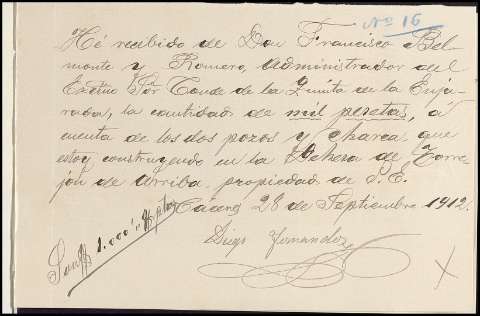 Nº 16
He recibido de Don Francisco Bel
monte y Romero, Administrador del
Excmo Sór Conde de la Quinta de la Enja
rada, la cantidad de mil pesetas, á
cuenta de los dos pozos y charca que
estoy construyendo en la Dehesa de Torre
jón de Arriba, propiedad de S. E.
Cáceres 28 de Septiembre 1912.
Diego Fernandez
Son 1.000 ptas